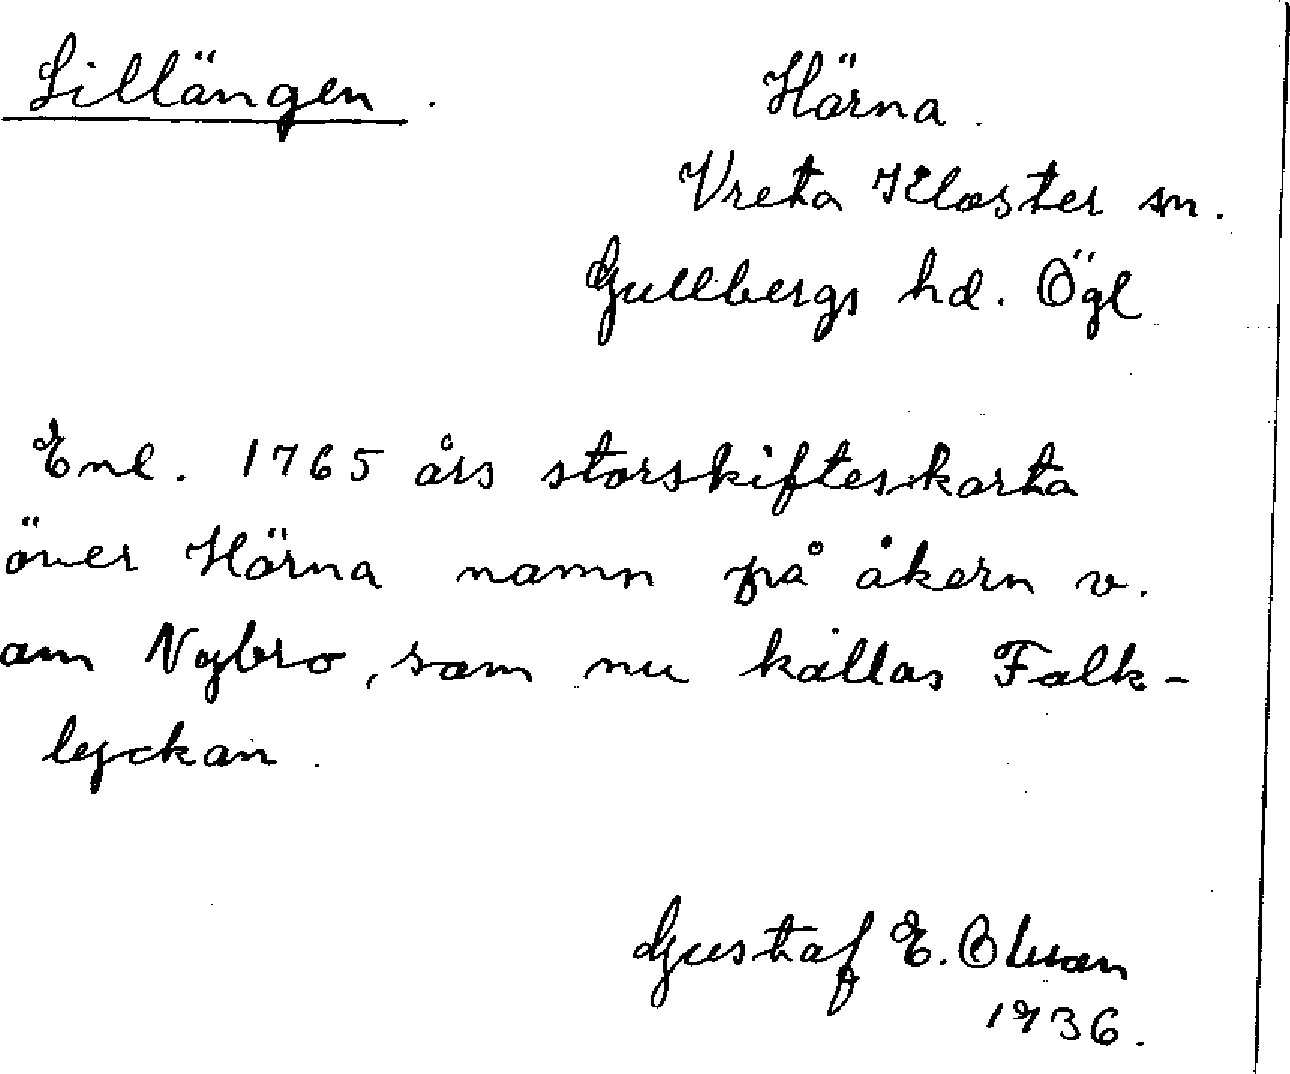 Lillängen.
Härna.
Vreta Kloster sn.
Gullbergs hd. Ögl
Enl. 1765 års storskifteskarta
över Härna namn på åkern v.
om Nybro, som nu kallas Falk-
lyckan.
Gustaf E. Olsson
1936.